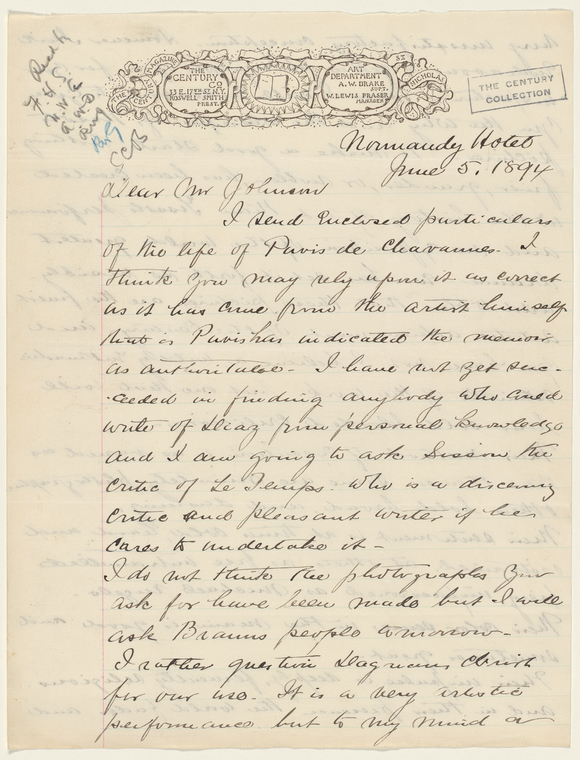 THE CENTURY MAGAZINE
THE
CENTURY
CO
33 E. 17TH ST. N.Y.
ROSWELL SMITH
PREST.
ART
DEPARTMENT
A. W. DRAKE
SUPT.
W. LEWIS FRASER
MANAGER
ST NICHOLAS
THE CENTURY
COLLECTION
Read
Normandy Hotel
June 5. 1894
Dear Mr Johnson
I send Enclosed particulars
of the life of Puvis de Chavannes. I
think you may rely upon it as correct
as it has come from the artist himself
that is Puvis has indicated the memoir
as authoritative - I have not yet suc-
-ceeded in finding anybody who could
write of Diaz from personal knowledge
and I am going to ask Sisson the
critic of Le Temps. who is a discerning
critic and pleasant writer if he
cares to undertake it -
I do not think the photographs you
ask for have been made but I will
ask Brauns people tomorrow -
I rather question Dagnans Christ
for our use. It is a very artistic
performance but to my mind a